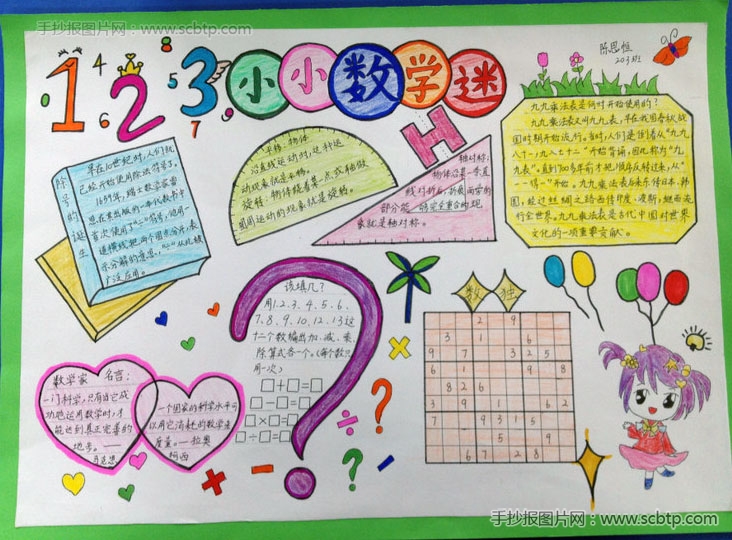 手抄报图片网:www.scbtp.com
123小小数学迷
陈思恒
203班
除号的诞生
早在10世纪时,人们就
已经开始使用除法符号了。
1659年,瑞士数学家雷
恩在其出版的一本代数书中
首次使用了"÷"符号,他用一
道横线把两个圆点分开,表
示分解的意思,"÷"从此被
广泛应用。
平移:物体
沿直线运动时,这种运
动现象就是平移。
旋转:物体绕着某一点或轴做
圆周运动的现象就是旋转。
轴对称:
物体沿着一条直
线对折后,折痕两旁的
部分能够完全重合的现
象就是轴对称。
九九乘法表是何时开始使用的?
九九乘法表又叫九九表,早在我国春秋战
国时期开始流行。当时,人们是倒着从"九九
八十一,八九七十二"开始背诵,因此称为"九
九表"。直到700多年前才把顺序反转过来,从"一
一得一"开始。九九乘法表后来东传日本、韩
国,经过丝绸之路西传印度、波斯,继而流
行全世界。九九乘法表是古代中国对世界
文化的一项重要贡献。
该填几?
用1、2、3、4、5、6、
7、8、9、10、12、13这
十二个数编出加、减、乘、
除算式各一个。(每个数只
用一次)
□+□=□
□-□=□
□×□=□
□÷□=□
数独
2 9
3 1 6
9 7 3 2 5
6 1 9
8 2 6
3 9 1 6 2
7 9 3 1 5
6 5 9
2 8
数学家 名言:
一门科学,只有当它成
功地运用数学时,才
能达到真正完善的
地步。——
马克思
一个国家的科学水平可
以用它消耗的数学来
度量。——拉奥
柯西
手抄报图片网:www.scbtp.com